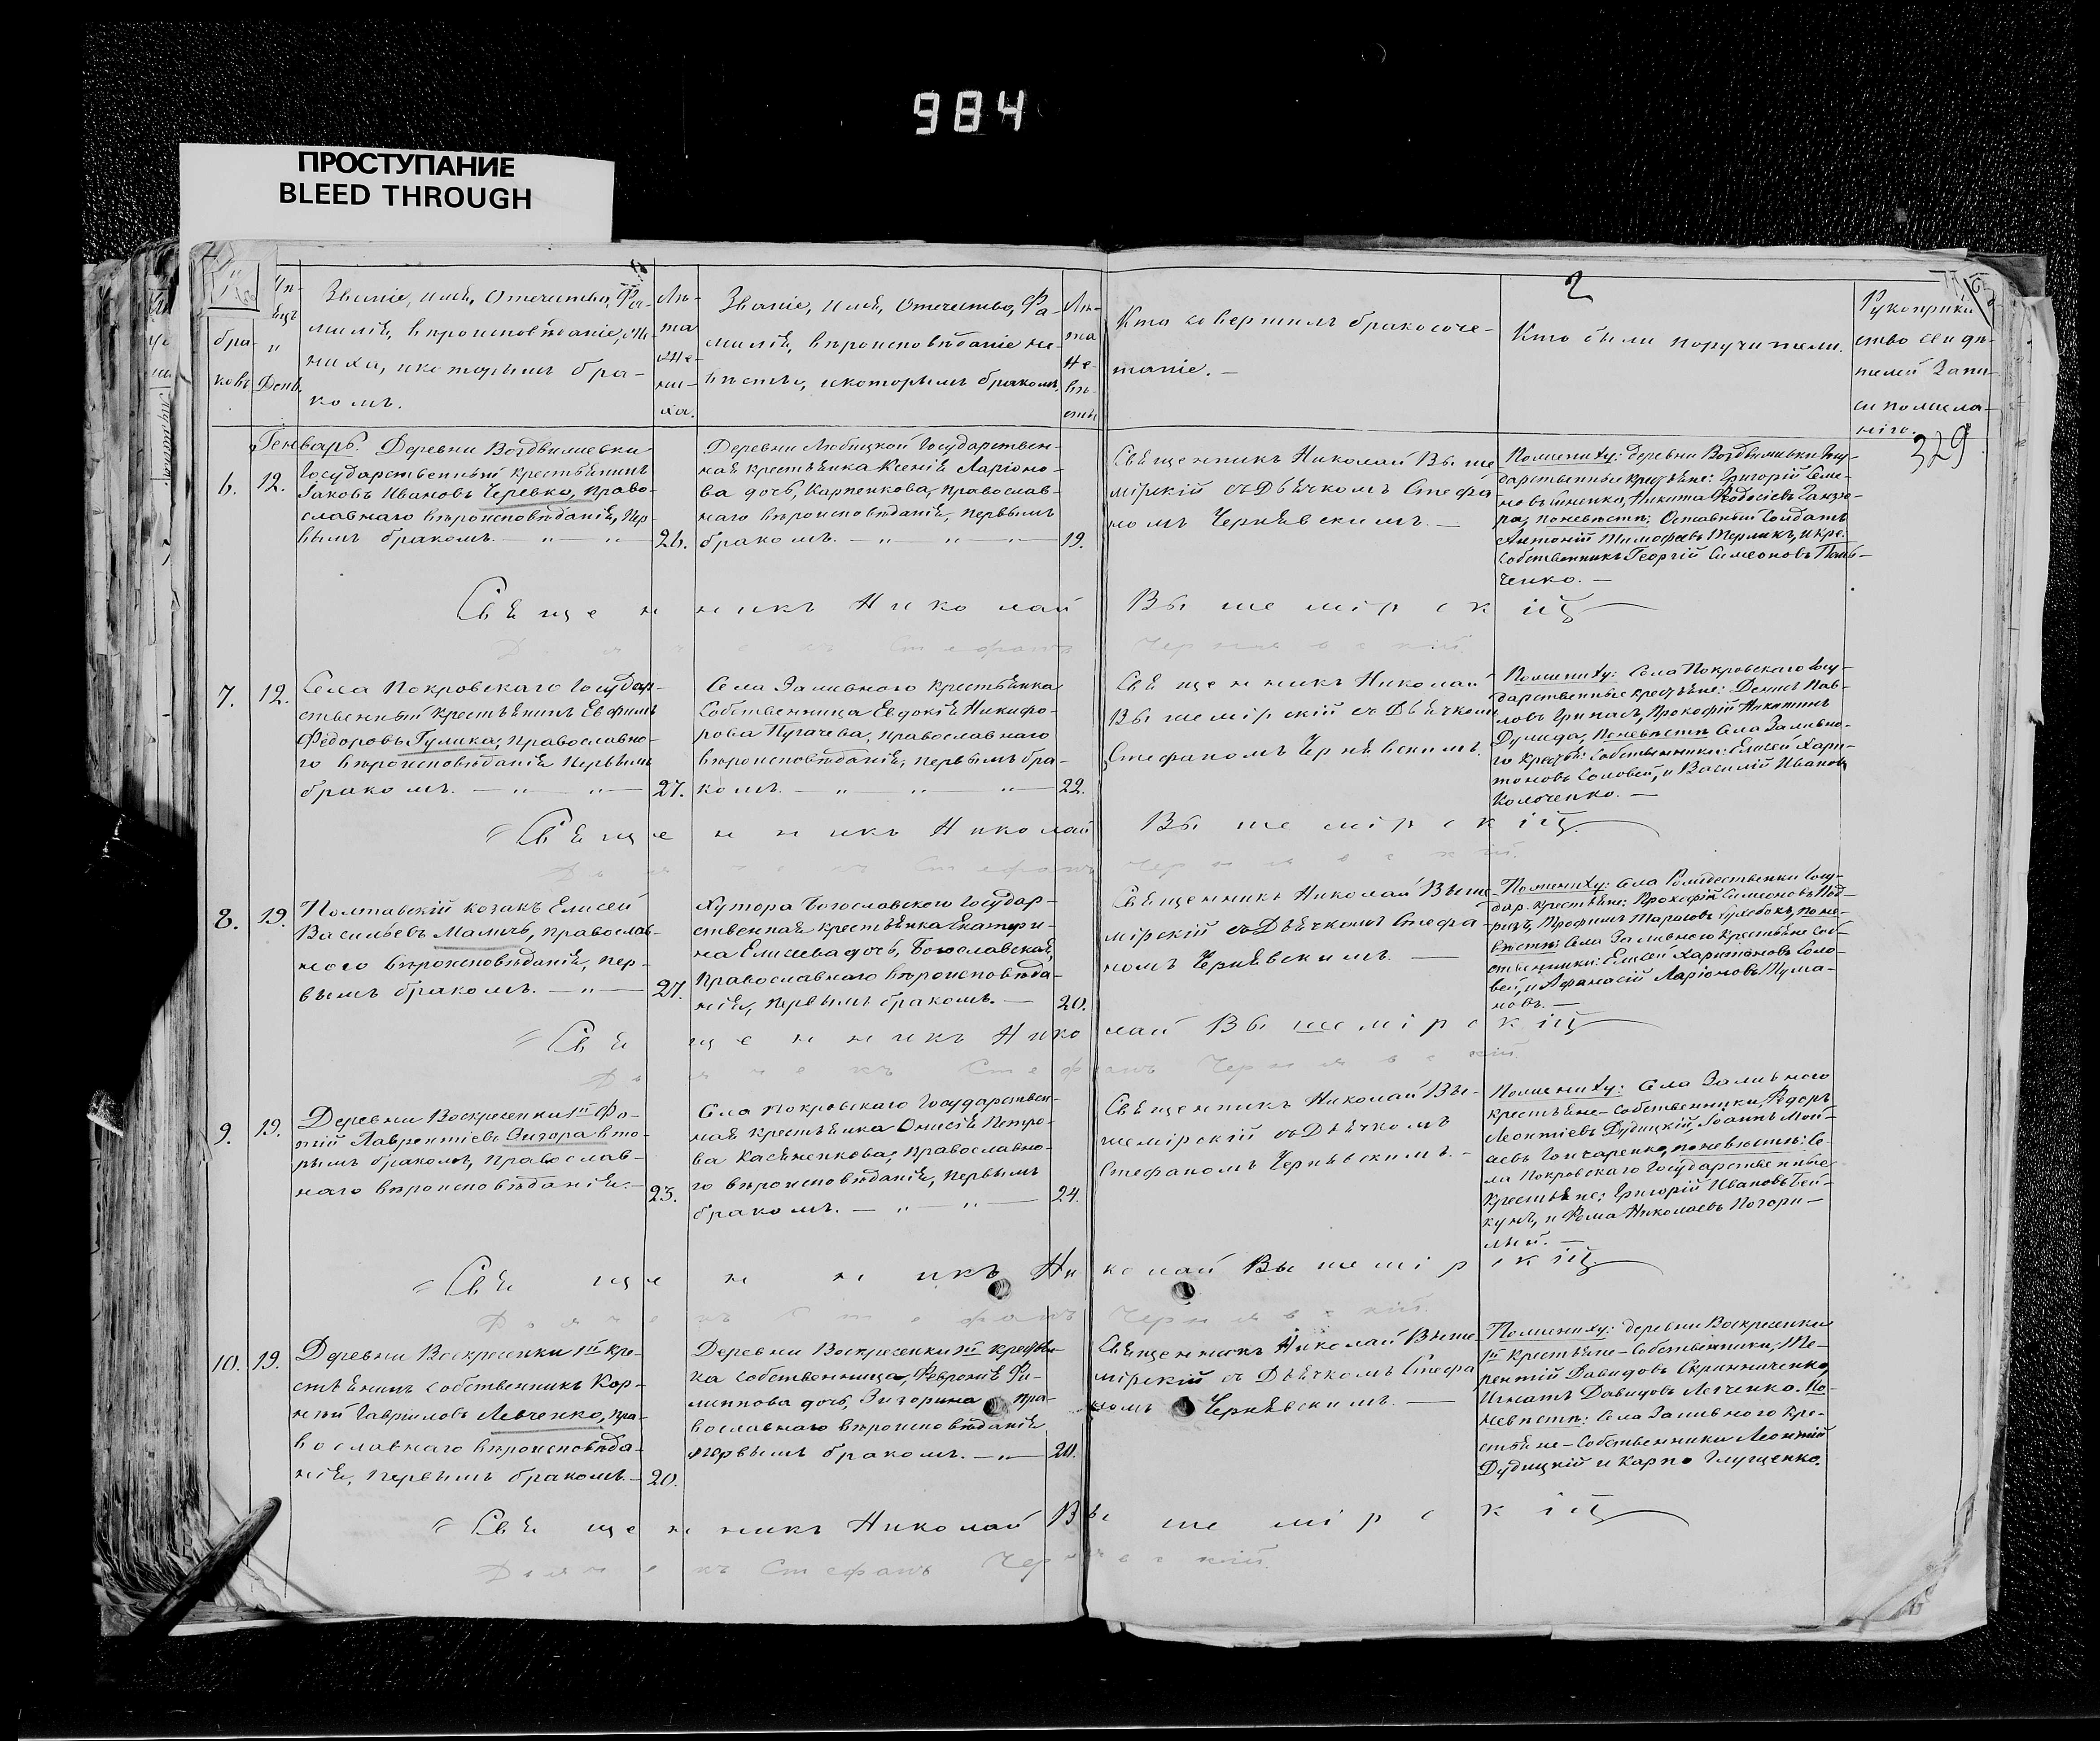 984
ПРОСТУПАНИЕ
BLEED THROUGH
2
329
бра-
ковъ
День.
Званіе, имя, Отечество, Фа-
милія, вѣроисповѣданіе, же-
ниха, и которымъ бра-
комъ.
Лѣ-
та
же-
ни-
ха.
Званіе, имя, Отечество, Фа-
милія, вѣроисповѣданіе не-
вѣсты, и которымъ бракомъ.
Лѣ-
та
не-
вѣ-
сты
Кто совершилъ бракосоче-
таніе. —
Кто были поручители.
Рукоприкл
ство свидѣ-
телей запи-
си по жела-
нію.
Генварь.
6.
12.
Деревни Воздвижевки
Государственный крестьянинъ
Іаковъ Ивановъ Черевко, право-
славнаго вѣроисповѣданія, пер-
вымъ бракомъ. — „ — „ —
26.
Деревни Любицкой Государствен-
ная крестьянка Ксенія Ларіоно-
ва дочь, Карпенкова, православ-
наго вѣроисповѣданія, первымъ
бракомъ. — „ — „ — „ —
19.
Священникъ Николай Выше
мірскій съ Дьячкомъ Стефа
номъ Чернявскимъ. —
По жениху: деревни Воздвижевки Госу-
дарственные крестьяне: Григорій Семе-
новъ Никита Ѳедосіевъ
по невѣстѣ: Отставный Солдатъ
Антоній Тимофеевъ и кре.
собственникъ Георгій Симеоновъ Пань-
ченко. —
Священникъ Николай Вышемірскій
Дьячекъ Стефанъ Чернявскій.
7.
12.
Села Покровскаго Государ-
ственный крестьянинъ Евфимъ
Ѳедоровъ Гулика, православна-
го вѣроисповѣданія первымъ
бракомъ. — „ — „ —
27.
Села Заливного крестьянка
Собственница Евдокія Никифо-
рова Пугачева, православнаго
вѣроисповѣданія, первымъ бра-
комъ. — „ — „ — „ —
22.
Священникъ Николай
Вышемірскій съ Дьячкомъ
Стефаномъ Чернявскимъ.
По жениху: Села Покровскаго Госу-
дарственные крестьяне: Демьянъ Пав-
ловъ Прокофій Никитинъ
по невѣстѣ Села Заливно-
го крестья: собственники: Елисей Хари-
тоновъ Соловей, и Василій Ивановъ
Колоченко. —
Священникъ Николай Вышемірскій.
Дьячекъ Стефанъ Чернявскій.
8.
19.
Полтавскій козакъ Елисей
Васильевъ Маличь, православ-
ного вѣроисповѣданія, пер-
вымъ бракомъ. — „ —
27.
Хутора Богославского Государ-
ственная крестьянка Екатери-
на Елисеева дочь, Богославская,
православнаго вѣроисповѣда-
нія, первымъ бракомъ. —
20.
Священникъ Николай Выше
мірскій съ Дьячкомъ Стефа-
номъ Чернявскимъ. —
По жениху: Села Рождественки Госу-
дар. крестьяне: Прокофій Симеоновъ
Трофимъ Тарасовъ по не-
вѣстѣ: Села Заливного крестьяне соб-
ственники: Елисей Харитоновъ Соло-
вей, и Афанасій Ларіоновъ Пума-
новъ. —
Священникъ Николай Вышемірскій
Дьячекъ Стефанъ Чернявскій
9.
19.
Деревни Воскресенки Фо-
тій Лаврентіевъ Зигора вто-
рымъ бракомъ, православ-
наго вѣроисповѣданія. —
23.
Села Покровскаго Государствен-
ная крестьянка Онисія Петро-
ва Касьяненкова, православно-
го вѣроисповѣданія, первымъ
бракомъ. — „ — „ —
24.
Священникъ Николай Вы-
шемірскій съ Дьячкомъ
Стефаномъ Чернявскимъ. -
По жениху: Села Заливного
крестьяне-собственники, Ѳедоръ
Леонтіевъ Дудицкій, Іоаннъ Мои-
сеевъ Гончаренко, по невѣстѣ: Се-
ла Покровскаго Государственные
крестьяне: Григорій Ивановъ Бей-
кунъ, и Ѳома Николаевъ Погори-
лый. —
Священникъ Николай Вышемірскій.
Дьячекъ Стефанъ Чернявскій.
10.
19.
Деревни Воскресенки кре-
стьянинъ собственникъ Кор-
ній Гавриловъ Левченко, пра-
вославнаго вѣроисповѣда-
нія, первымъ бракомъ. —
20.
Деревни Воскресенки крестьян-
ка собственница, Февронія Фи-
липпова дочь, Зигорина пра-
вославнаго вѣроисповѣданія
первымъ бракомъ. — „ —
20.
Священникъ Николай Выше
мірскій съ Дьячкомъ Стефа
номъ Чернявскимъ. —
По жениху: деревни Воскресенки
крестьяне-собственники, Те-
рентій Давидовъ Скрипниченко,
Игнатъ Давидовъ Левченко. По
невѣстѣ: Села Заливного кре-
стьяне-собственники Леонтій
Дудицкій и Карпъ Глущенко.
Священникъ Николай Вышемірскій
Дьячекъ Стефанъ Чернявскій.